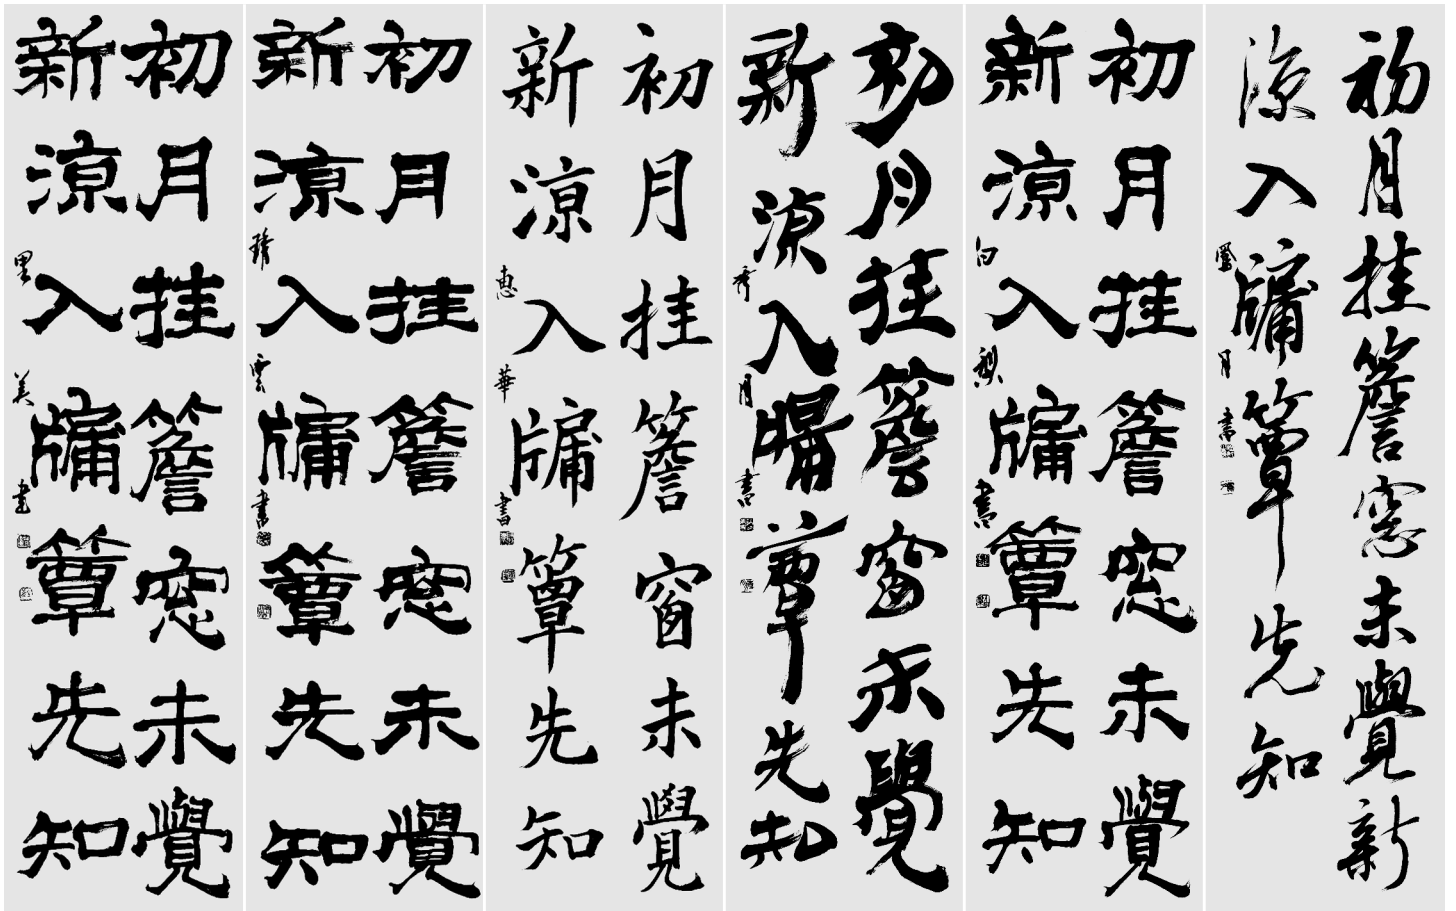 初月挂簷窓未覺新
涼入牖簟先知
鳳月書
初月挂簷窓未覺
新涼入牖簟先知
白書
初月挂簷窗未覺
新涼入牖簟先知
秀月書
初月挂簷窗未覺
新涼入牖簟先知
惠華書
初月挂簷窓未覺
新涼入牖簟先知
琦雲書
初月挂簷窓未覺
新涼入牖簟先知
里美書